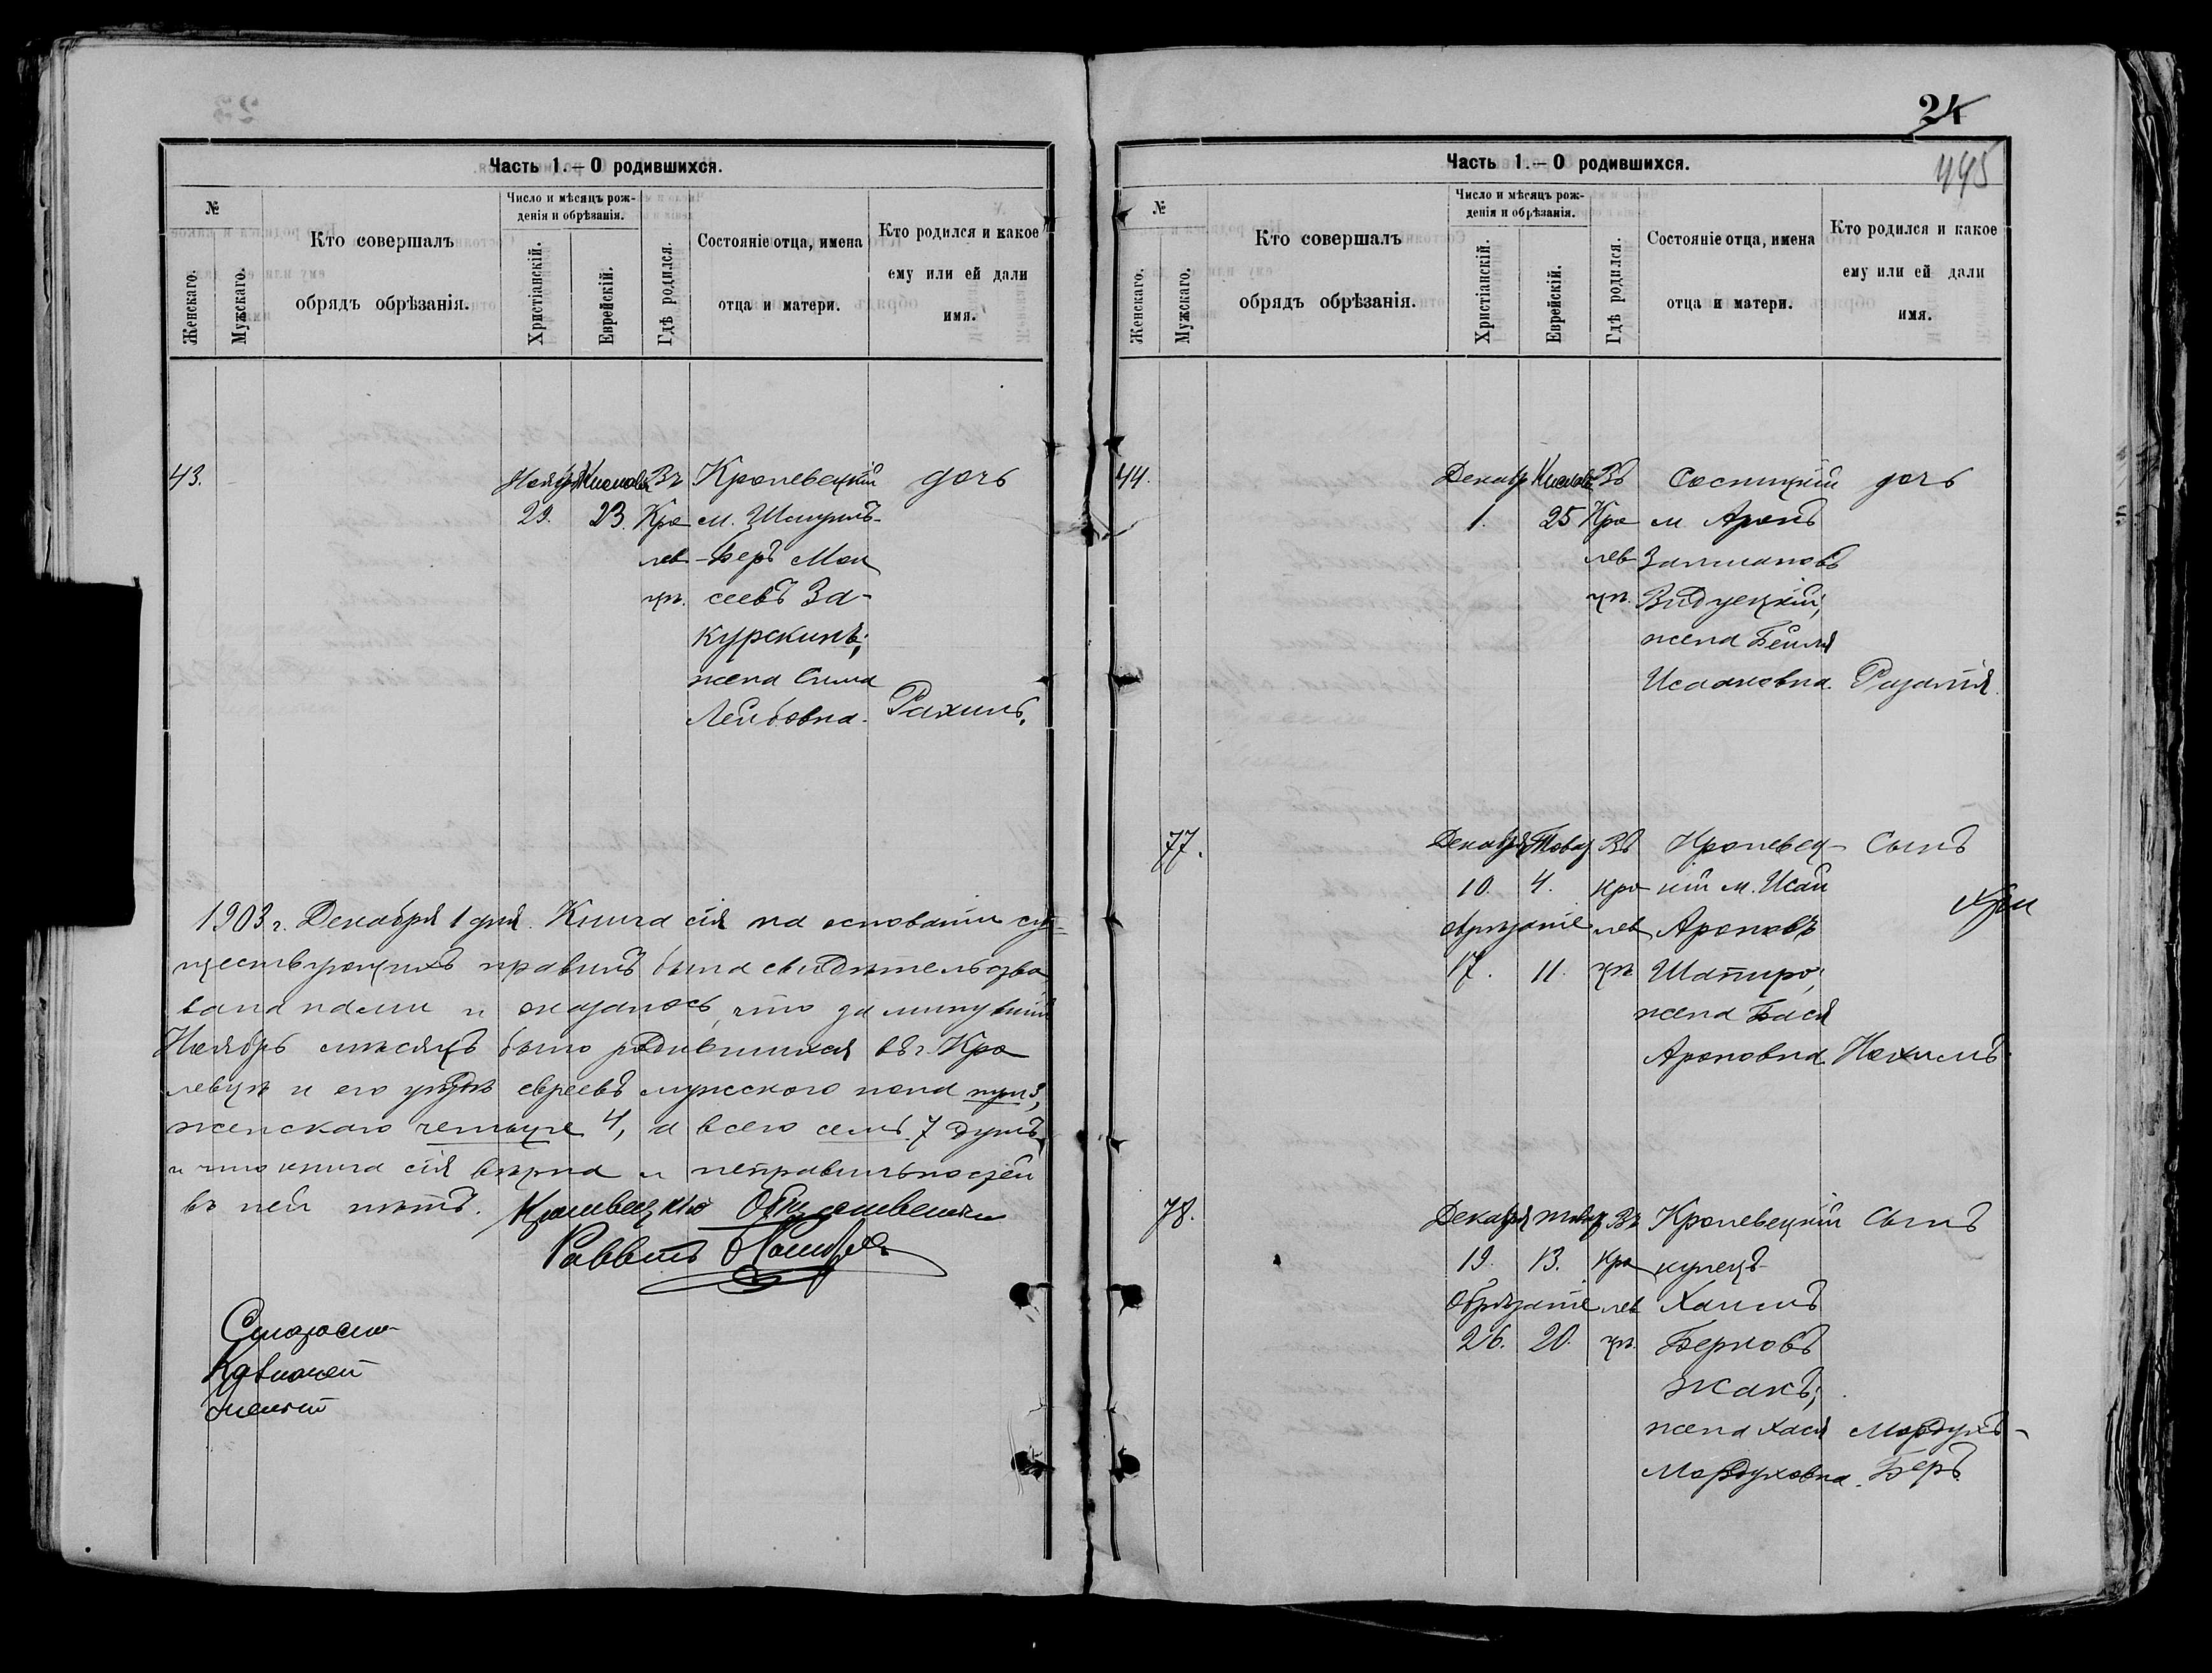 Часть 1.—О родившихся.
№
Женскаго.
Мужскаго.
Кто совершалъ
обрядъ обрѣзанія.
Число и мѣсяцъ рож-
денія и обрѣзанія.
Христіанскій.
Еврейскій.
Гдѣ родился.
Состояніе отца, имена
отца и матери.
Кто родился и какое
ему или ей дали
имя.
43. Ноября Кислева Въ Кролевецкій дочь
29. 23. Кро м. Шмуилъ-
лев -Беръ Мои
цѣ. сеевъ За-
курскинъ;
жена Сима
Лейбовна. Рахиль.
1903 г. Декабря 1 дня. Книга сія на основаніи су-
ществующихъ правилъ была свидѣтельство
вана нами и оказалось, что за минувшій
Ноябрь мѣсяцъ было родившихся въ г. Кро
левцѣ и его уѣздѣ евреевъ мужского пола три 3,
женскаго четыре 4, а всего семь 7 душъ,
и что книга сія вѣрна и неправильностей
въ ней нѣтъ. Кролевецкій Общественный
Раввинъ
Староста
24
445
Часть 1.—О родившихся.
№
Женскаго.
Мужскаго.
Кто совершалъ
обрядъ обрѣзанія.
Число и мѣсяцъ рож-
денія и обрѣзанія.
Христіанскій.
Еврейскій.
Гдѣ родился.
Состояніе отца, имена
отца и матери.
Кто родился и какое
ему или ей дали
имя.
44. Декабр Кислев Въ Сосницкій дочь
1. 25 Кро м Аронъ
лев Залмановъ
цѣ. Видуецкій,
жена Бейля
Исааковна. Розалія.
77. Декабря Товаз Въ Кролевец- Сынъ
10. 4. Кро кій м. Исай
обрѣзаніе лев Ароновъ
17. 11. цѣ Шапиро;
жена Бася
Ароновна Нохимъ.
78. Декабря Товаз Въ Кролевецкій Сынъ
19. 13. Кро купецъ
Обрѣзаніе лев Хаимъ
26. 20. цѣ. Берковъ
Жакъ;
жена Хася Мордухъ-
Мордуховна. Беръ